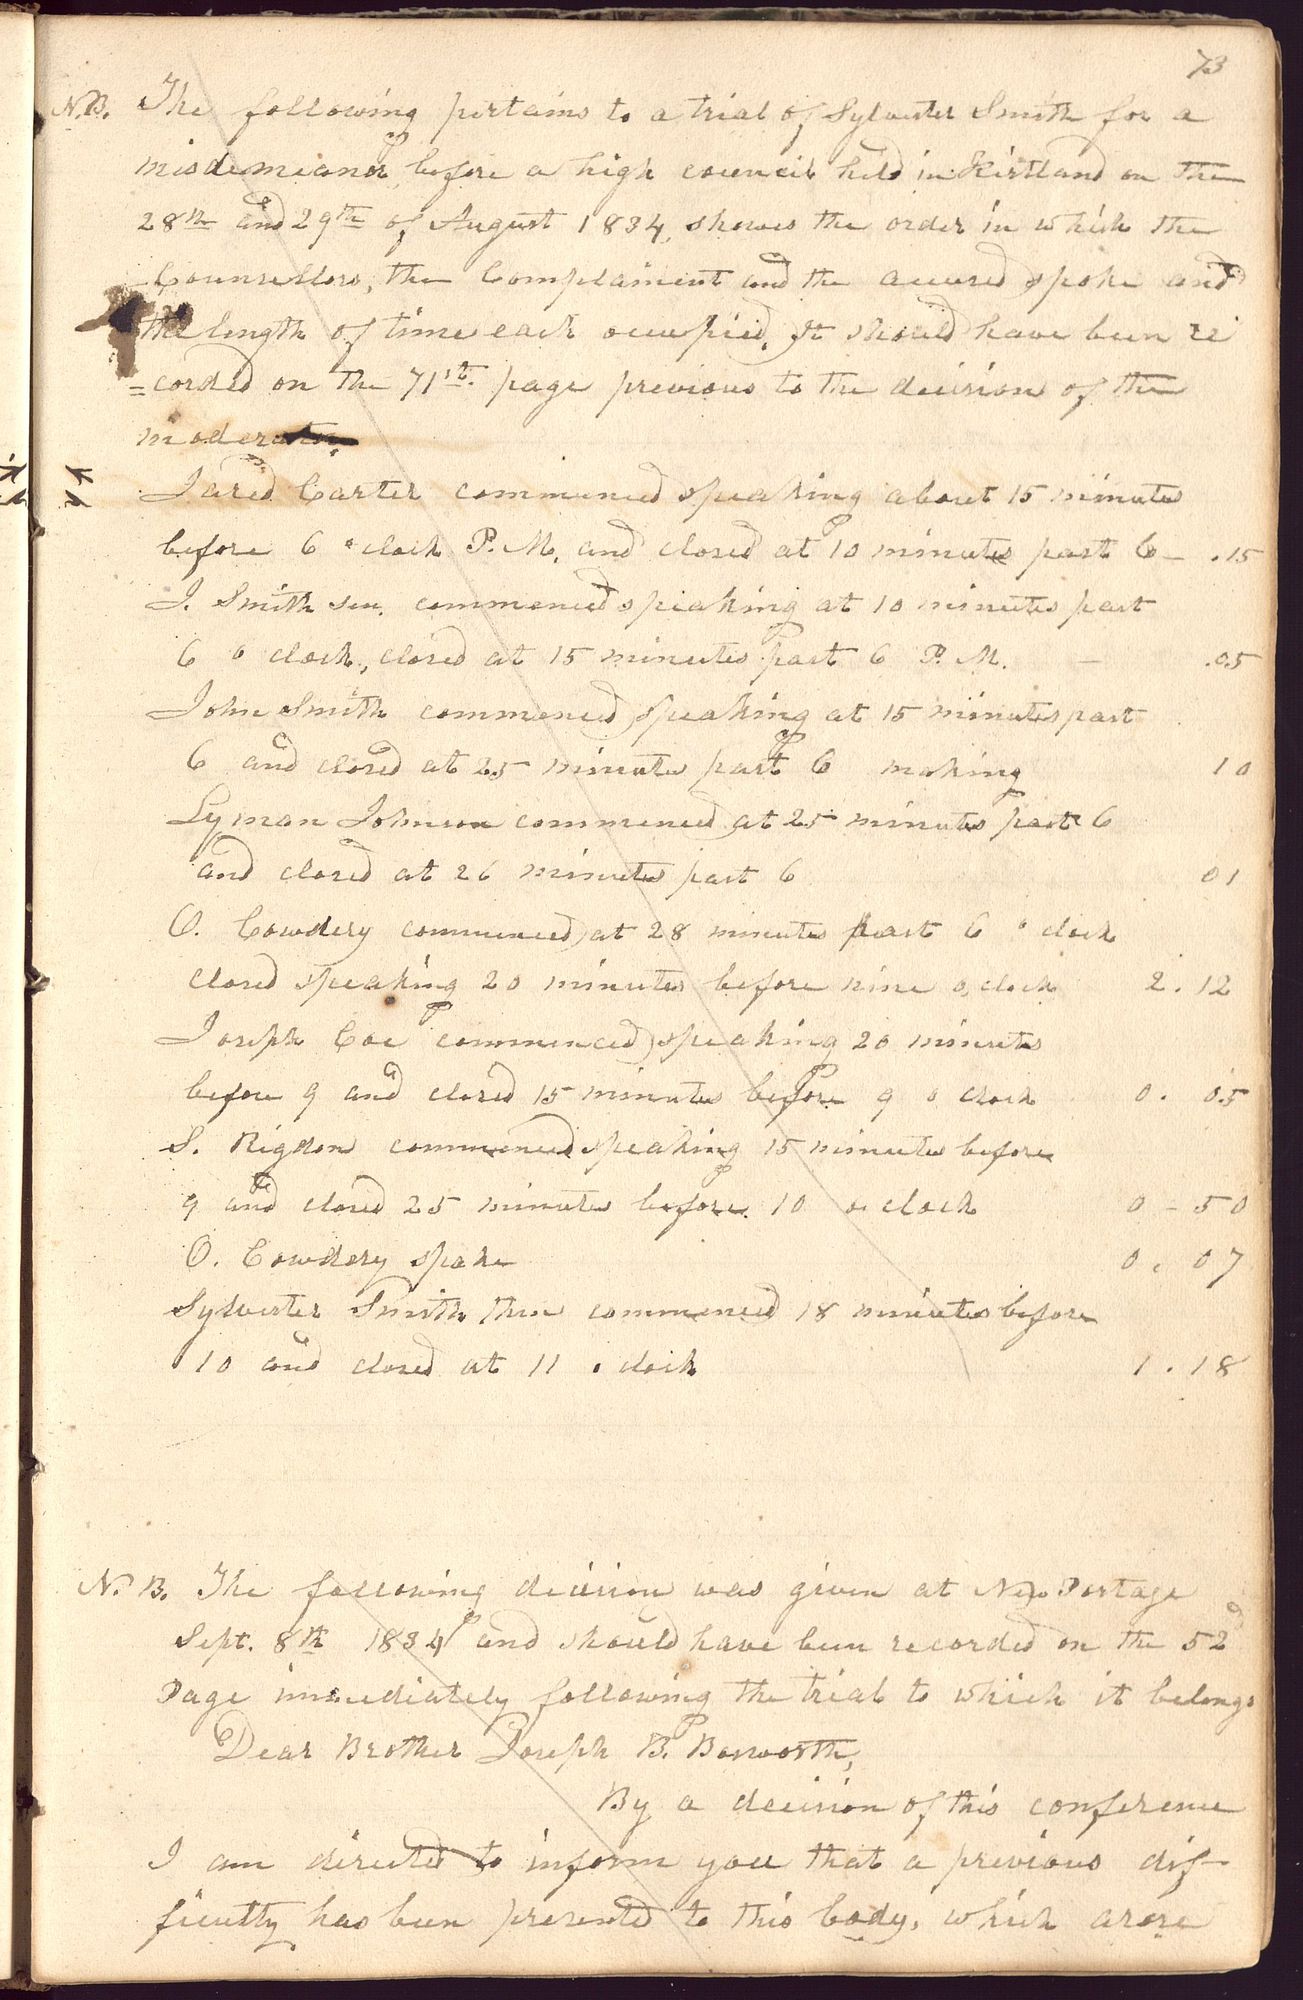 73
N.B. The following pertains to a trial of Sylvester Smith for a
misdemeanor, before a high council held in Kirtland on the
28th and 29th of August 1834, shows the order in which the
Counsellors, the Complainent and the accused spoke and
the length of time each occupied. It should have been re
=corded on the 71st. page previous to the decision of the
moderator.
Jared Carter commenced speaking about 15 minutes
before 6 o clock P.M. and closed at 10 minutes past 6 – .15
J. Smith sen. commenced speaking at 10 minutes past
6 o clock, closed at 15 minutes past 6 P.M. – .05
John Smith commenced speaking at 15 minutes past
6 and closed at 25 minutes past 6 making 10
Lyman Johnson commenced at 25 minutes past 6
and closed at 26 minutes past 6 01
O. Cowdery commenced at 28 minutes past 6 o clock
closed speaking 20 minutes before nine o,clock 2.12
Joseph Coe commenced speaking 20 minutes
before 9 and closed 15 minutes before 9 o clock 0. 05
S. Rigdon commenced speaking 15 minutes before
9 and closed 25 minutes before 10 o clock 0 – 50
O. Cowdery spoke 0. 07
Sylvester Smith then commenced 18 minutes before
10 and closed at 11 o clock 1.18
N. B. The following decision was given at New Portage
Sept. 8th 1834 and should have been recorded on the 52d
Page immediately following the trial to which it belongs
Dear Brother Joseph B. Bosworth,
By a decision of this conference
I am directed to inform you that a previous dif-
ficulty has been presented to this body, which arose